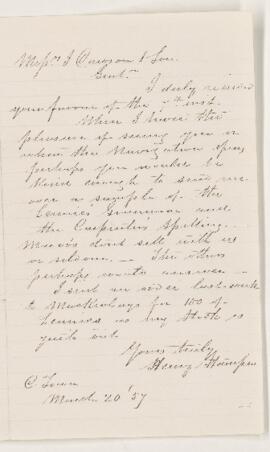 Messrs J Dawson & Son
Gentn
I duly received
your favour of the 7th inst.
When I have the
pleasure of seeing you or
when the Navigation opens
perhaps you would be
kind enough to send me
over a sample of the
Lennies Grammar and
the Carpenters Spelling.
Mavors dont sell with us
or seldom — The others
perhaps would answer —
I sent an order last week
to for 100 of
Lennies as my stock is
quite out
Yours truly
Henry
C Town
March 20 '57